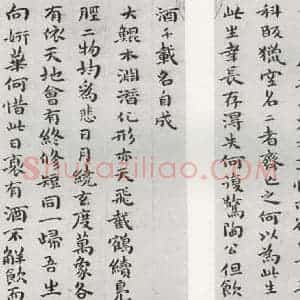 獵空名二者齊之何以為此生
此生幸長存淂失何復驚陶公但飲
酒千載名自成
大鯤本淵潛化形亦天飛截鶴續鳧
脛二物均為悲日月繞玄度萬象各
有依天地會有終脩短同一歸吾生
向華何惜此日衰有酒不解飲而
Shufaziliao.com